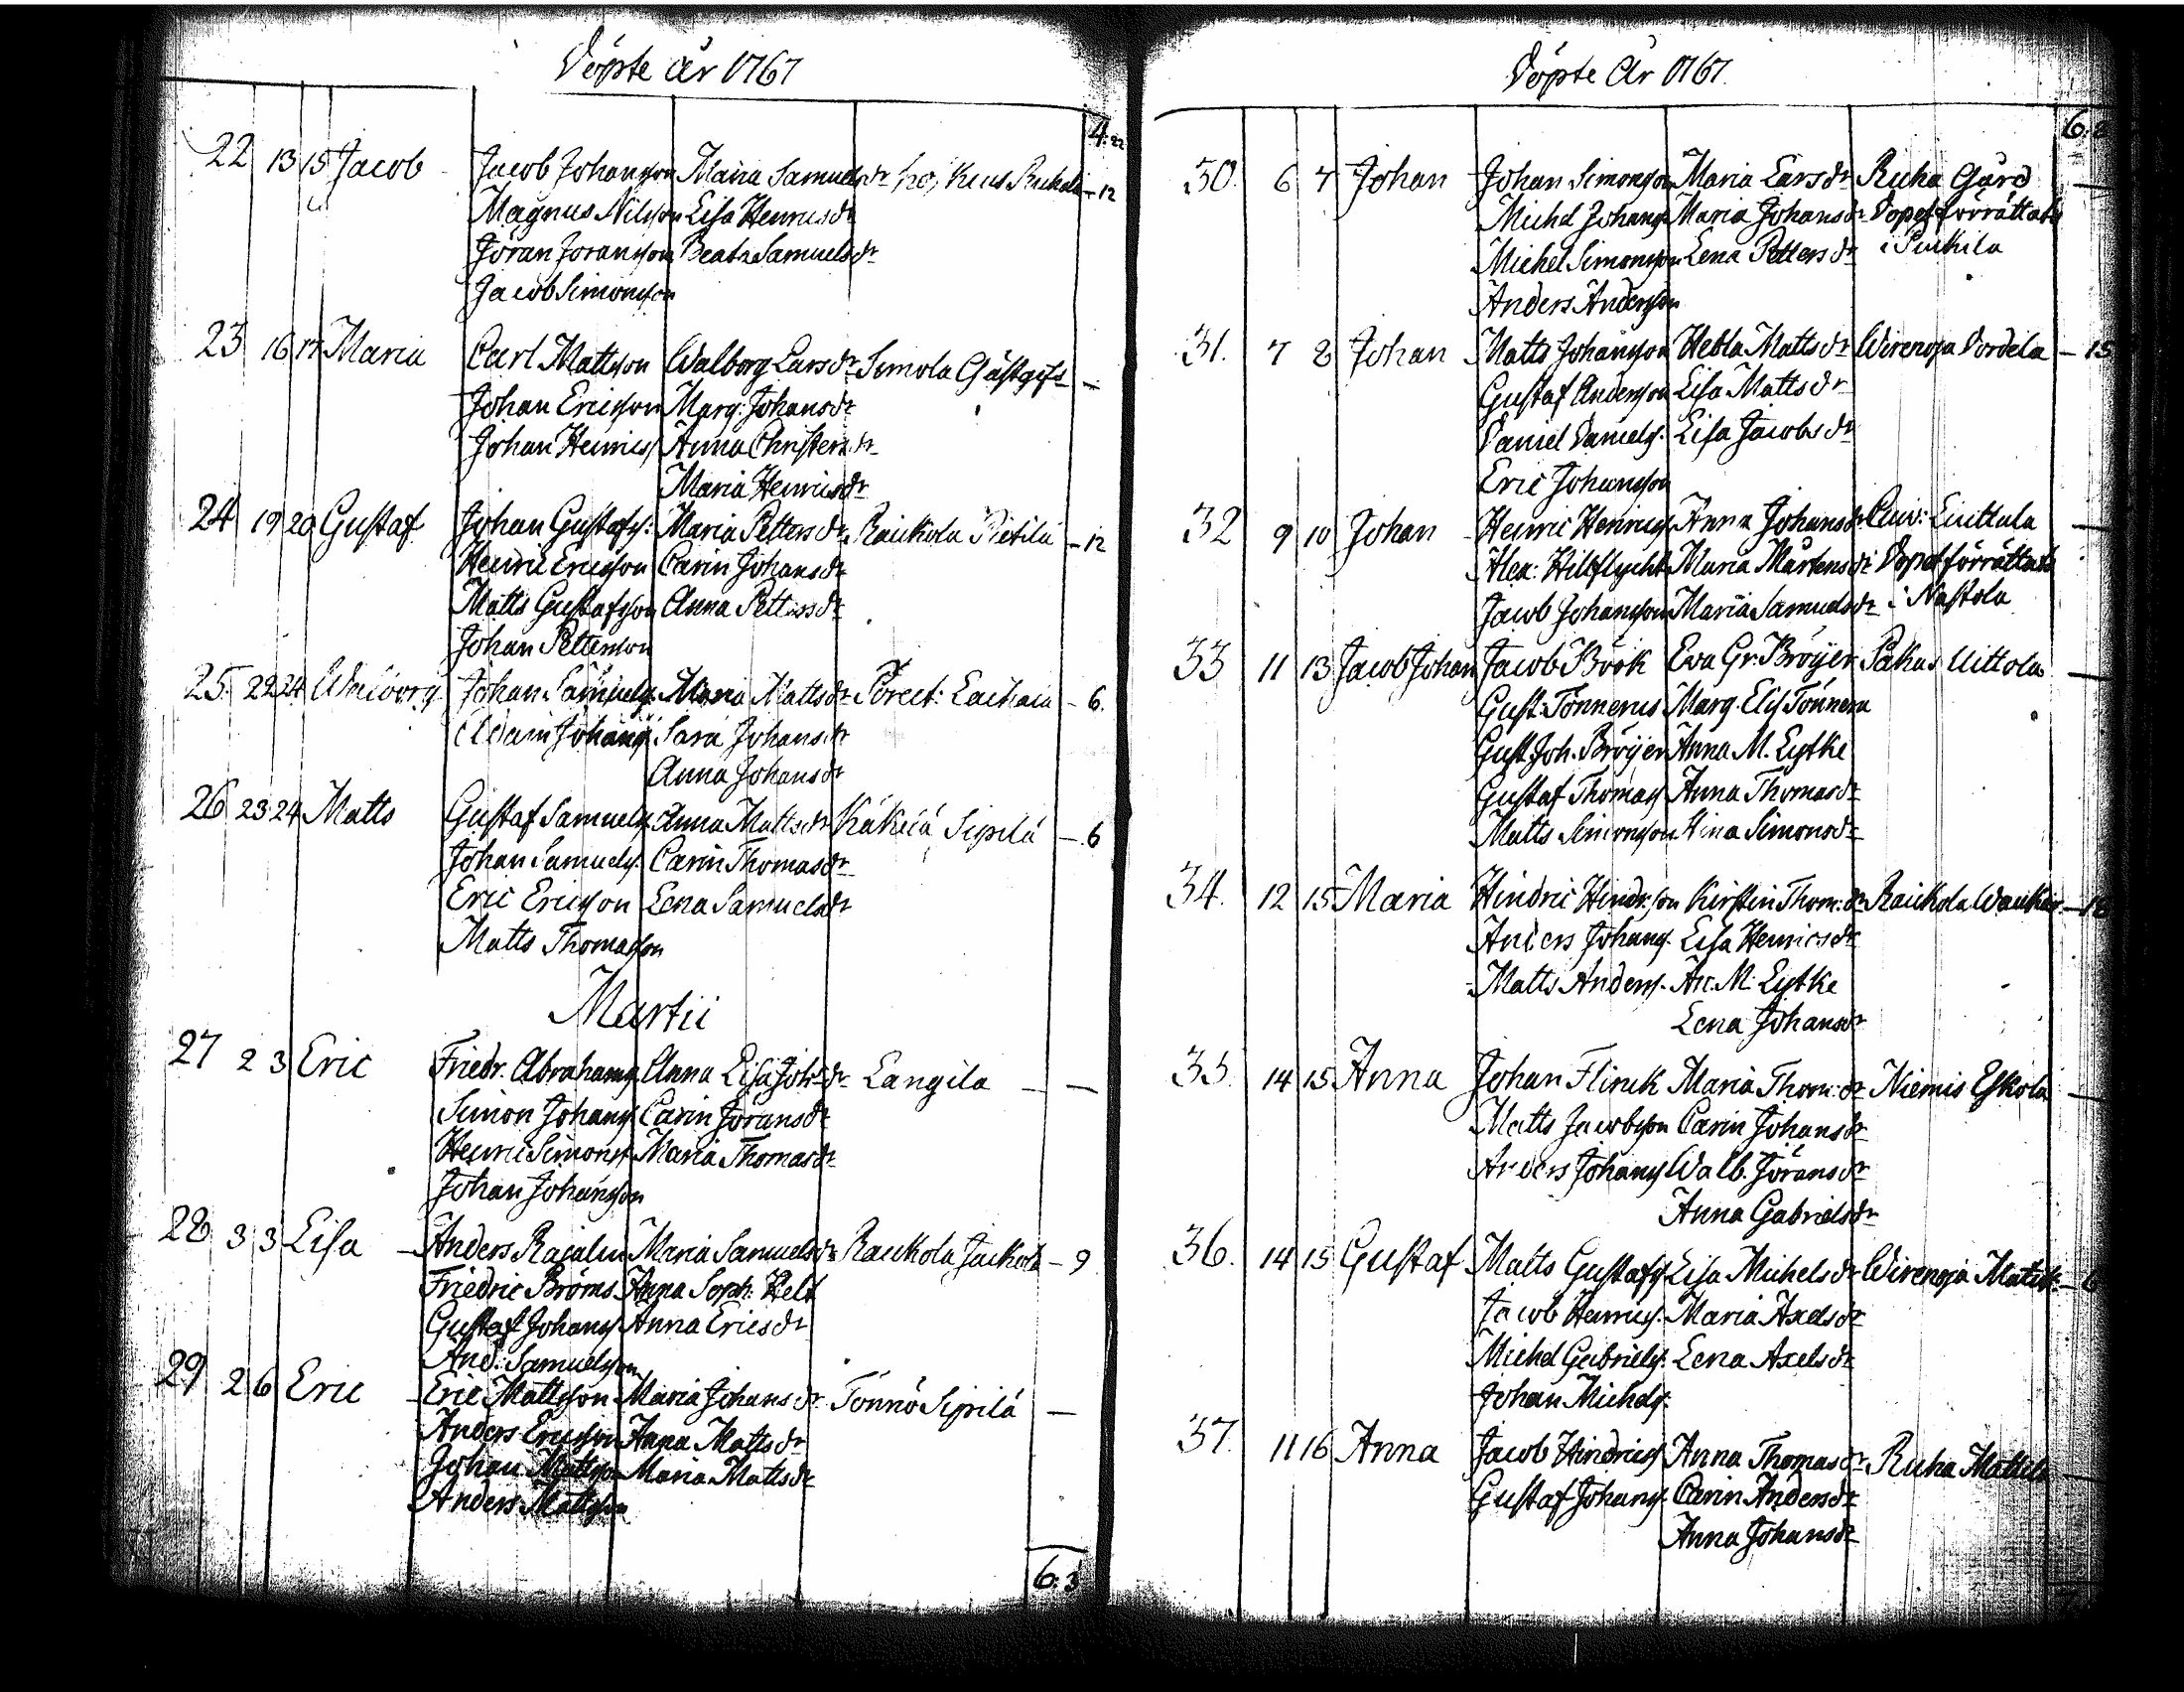 Döpte år 1767
4.22
22 13 15 Jacob Jacob Johansson Maria Samuelsdr -12
Magnus Nilsson Lisa Henricsdr
Jöran Joransson Beata Samuelsdr
Jacob Simonsson
23 16 17 Maria Carl Mattsson Walborg Larsdr Simola Gästgifs -
Johan Ericsson Marg: Johansdr
Johan Henrics Anna Christersdr
Maria Henricsdr
24 19 20 Gustaf Johan Gustafs: Maria Pettersdr Raickola Pietilä -12
Henric Ericsson Carin Johansdr
Matts Gustafsson Anna Pettersdr
Johan Pettersson
25. 22 24 Walborg Johan Samuels. Maria Mattsdr -6.
Adam Johans Sara Johansdr
Anna Johansdr
26 23 24 Matts Gustaf Samuels. Anna Mattsdr Käkelä Sipilä -6
Johan Samuels. Carin Thomasdr
Eric Ericsson Lena Samuelsdr
Matts Thomasson
Martii
27 2 3 Eric Friedr. Abrahams. Anna Lisa Joh:dr Langila - -
Simon Johans Carin Joransdr
Henric Simons Maria Thomasdr
Johan Johansson
28 3 3 Lisa Anders Rajalin Maria Samuelsdr Raickola Jackola -9
Friedric Broms Anna Soph. Helt
Gustaf Johans Anna Ericsdr
And: Samuelsson
29 2 6 Eric Eric Mattsson Maria Johansdr Tönnö Sipilä -
Anders Ericsson Anna Mattsdr
Johan Mattsson Maria Mattsdr
Anders Mattsson
6.3
Döpte År 1767.
30. 6 7 Johan Johan Simonsson Maria Larsdr Ruha Gård -
Michel Johans. Maria Johansdr Dopet förrättats
Michel Simonsson Lena Pettersdr i
Anders Andersson
31. 7 8 Johan Matts Johansson Hebla Mattsdr Wirenoja Dordila -15
Gustaf Andersson Lisa Mattsdr
Daniel Daniels. Lisa Jacobsdr
Eric Johansson
32 9 10 Johan Henric Henrics Anna Johansdr -
Alex: Hilflycht Maria Mårtensdr Dopet förrättats
Jacob Johansson Maria Samuelsdr i Nastola
33 11 13 Jacob Johan Jacob Böök Eva Gr. Bröijer Pakas Uittola -
Gust: Tonnerus Marg. Elis Tonnera
Gust Joh. Bröijer Anna M. Lytke
Gustaf Thomas Anna Thomasdr
Matts Simonsson Stina Simonsdr
34. 12 15 Maria Hindric Hindr:son Kirstin Thom:dr Raickola
Anders Johans. Lisa Henricsdr
Matts Anders. An: M: Lytke
Lena Johansdr
35. 14 15 Anna Johan Flinck Maria Thom:dr Niemis Eskola -
Matts Jacobsson Carin Johansdr
Anders Johans Walb. Jöransdr
Anna Gabrielsdr
36. 14 15 Gustaf Matts Gustafs Lisa Michelsdr Wirenoja Matik. -6
Jacob Henrics. Maria Axelsdr
Michel Gabriels. Lena Axelsdr
Johan Michels.
37. 11 16 Anna Jacob Hindrics Anna Thomasdr Ruha Mattila -
Gustaf Johans. Carin Andersdr
Anna Johansdr